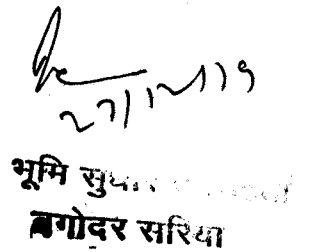 27/12/19
भूमि सुधार
बगोदर सरिया